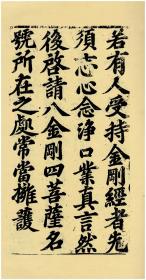 若有人受持金剛經者先
須志心念淨口業真言然
後啓請八金剛四菩薩名
號所在之處常當擁護